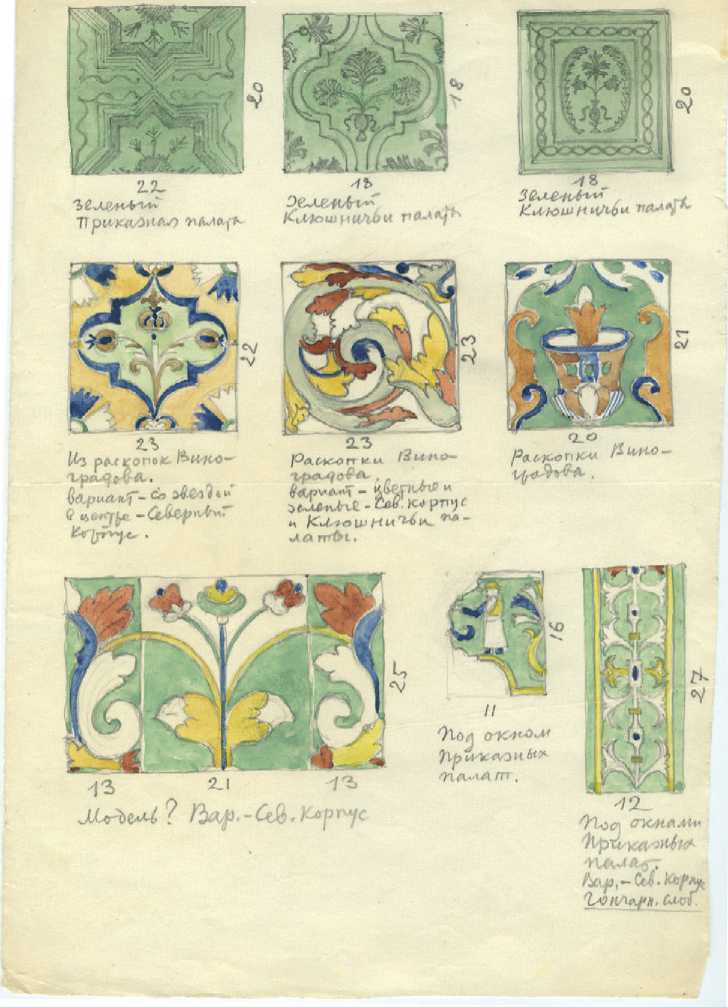 20
22
Зеленый
Приказная палата
18
18
Зеленый
Ключничьи палата
20
18
Зеленый
Ключничьи палата
22
23
Из раскопок Вино-
градова.
вариант – со звездой
в центре – Северный
корпус.
23
23
Раскопки Вино-
градова.
вариант – цветные и
зеленые – Сев. корпус
и Ключничьи па-
латы.
21
20
Раскопки Вино-
градова.
25
13 21 13
Модель? Вар. – Сев. Корпус
16
11
Под окном
Приказных
палат.
27
12
Под окнами
Приказных
палат.
Вар. – Сев. Корпус
Гончарн. слоб.